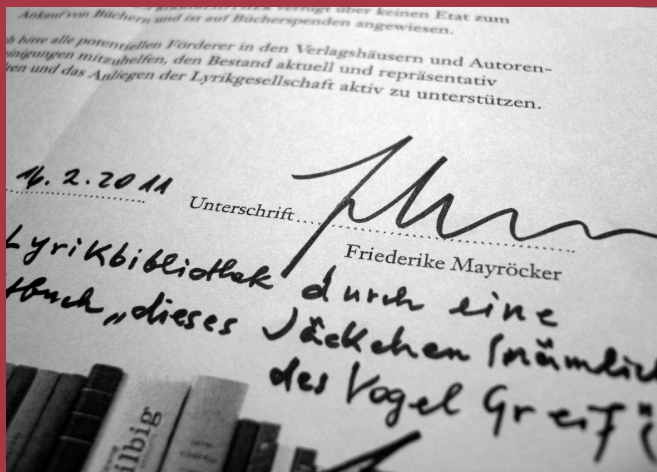 verfügt über keinen Etat zum
Ankauf von Büchern und ist auf Bücherspenden angewiesen.
bitte alle potentiellen Förderer in den Verlagshäusern und Autoren-
mitzuhelfen, den Bestand aktuell und repräsentativ
und das Anliegen der Lyrikgesellschaft aktiv zu unterstützen.
16.2.2011 Unterschrift
Friederike Mayröcker
Lyrikbibliothek durch eine
"dieses Jäckchen (nämlich
des Vogel Greif
ilbig